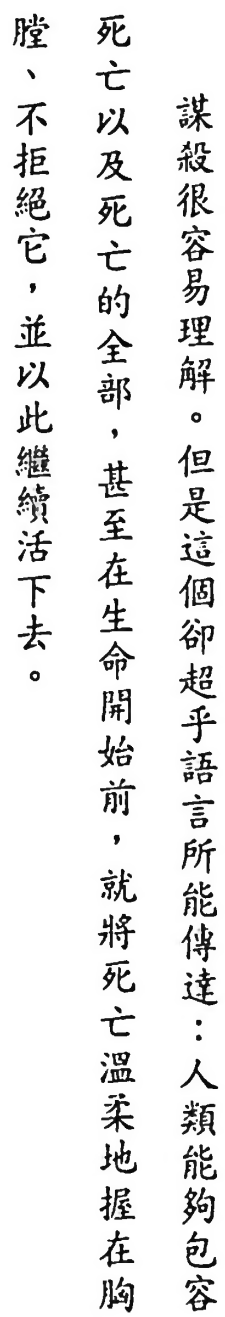 謀殺很容易理解。但是這個卻超乎語言所能傳達：人類能夠包容
死亡以及死亡的全部，甚至在生命開始前，就將死亡溫柔地握在胸
膛、不拒絕它，並以此繼續活下去。